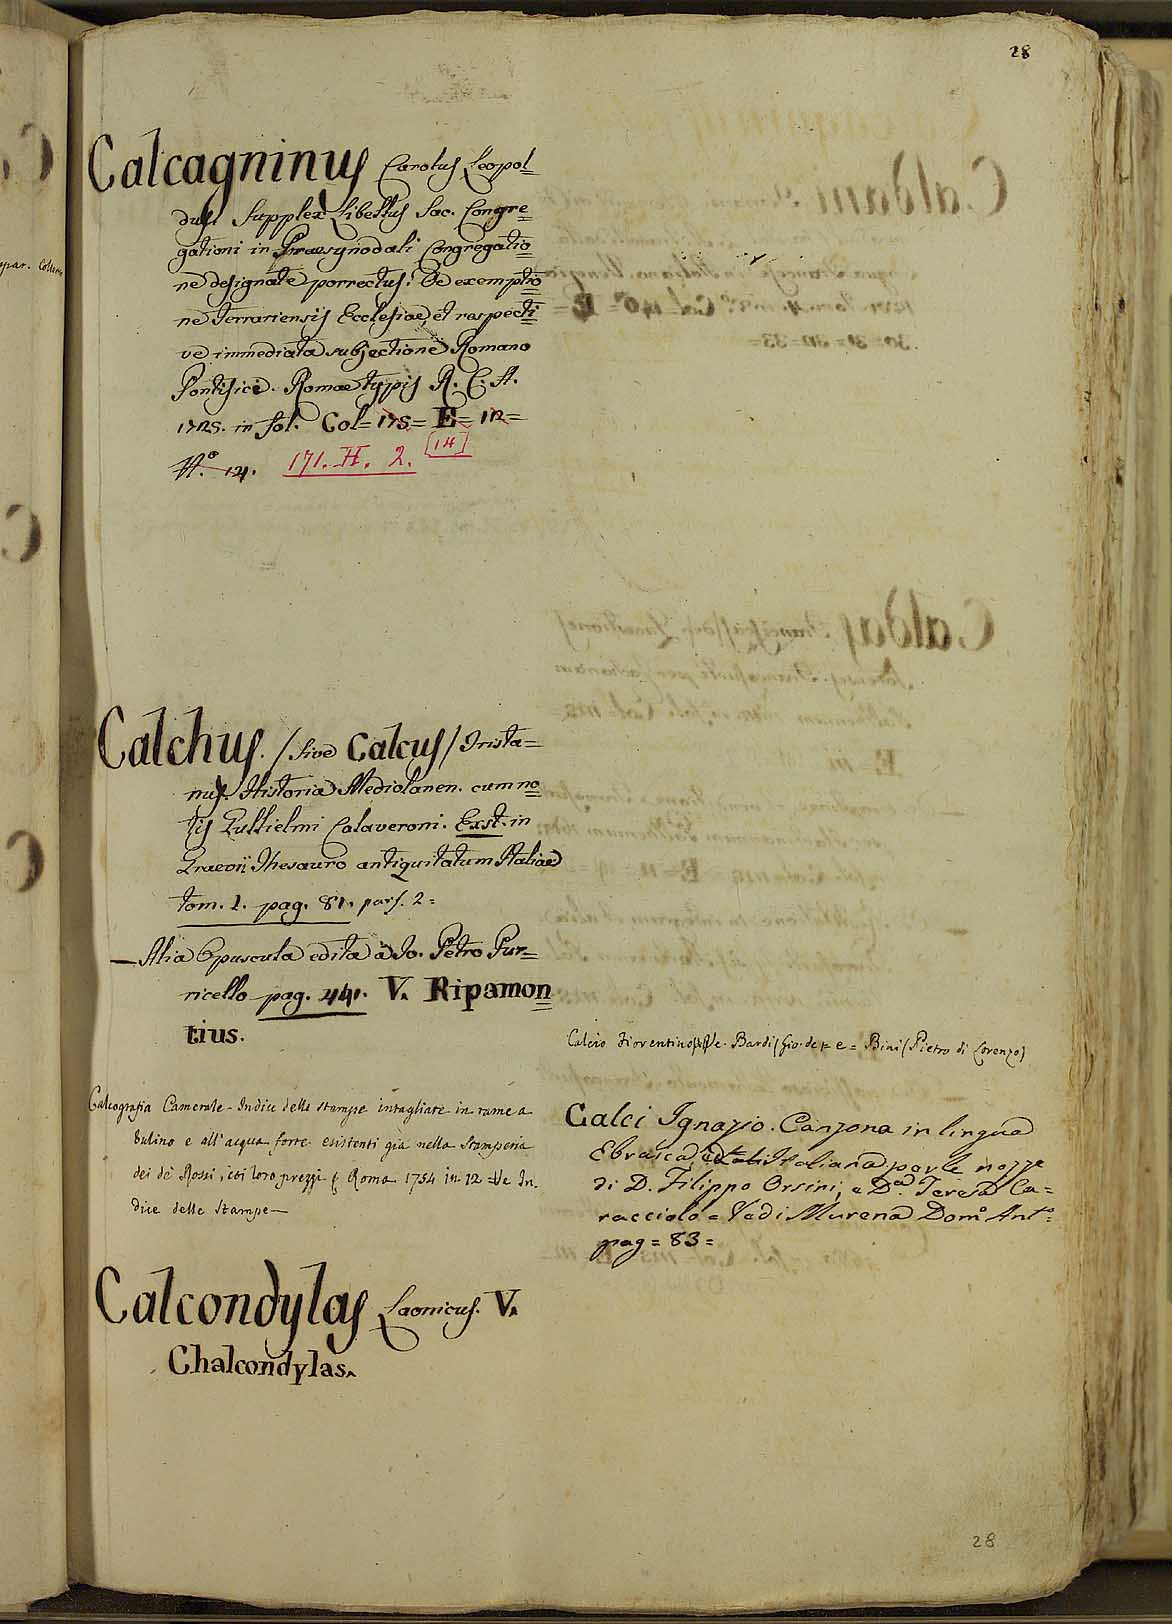 28
Calcagninus Carolus Leopol=
dus Supplex Libellus Sac. Congre=
gationi in Praesynodali Congregatio=
ne designatae porrectus. De exemptio=
ne Ferrariensis Ecclesiae, et respecti=
ve immediata subjectione Romano
Pontifici. Romae typis R. C. A.
1725. in fol. Col= 175= E= 12=
N.° 14. 171. H. 2. [14]
Calchus. / sive Calcus / Trista=
nus. Historia Mediolanen. cum no=
tis Gullielmi Calaveroni. Exst. in
Graevii Thesauro antiquitatum Italiae
tom. 1. pag. 81. pars. 2=
— Alia Opuscula edita à Jo. Petro Pur=
ricello pag. 441. V. Ripamon=
tius.
Calcografia Camerale - Indice delle stampe intagliate in rame a
bulino e all'acqua forte esistenti già nella Stamperia
dei de Rossi, coi loro prezzi Roma 1754 in 12 = Ve In.
dice delle Stampe —
Calcondylas Laonicus. V.
Chalcondylas.
Calcio Fiorentino Bardi (Gio. de) e = Bini (Pietro di Lorenzo)
Calci Ignazio. Canzona in lingua
Ebraica, ed Italiana par le nozze
di D. Filippo Orsini, e D.a Teresa Ca=
racciolo = Vedi Murena Dom.° Ant.°=
pag = 83 =
28